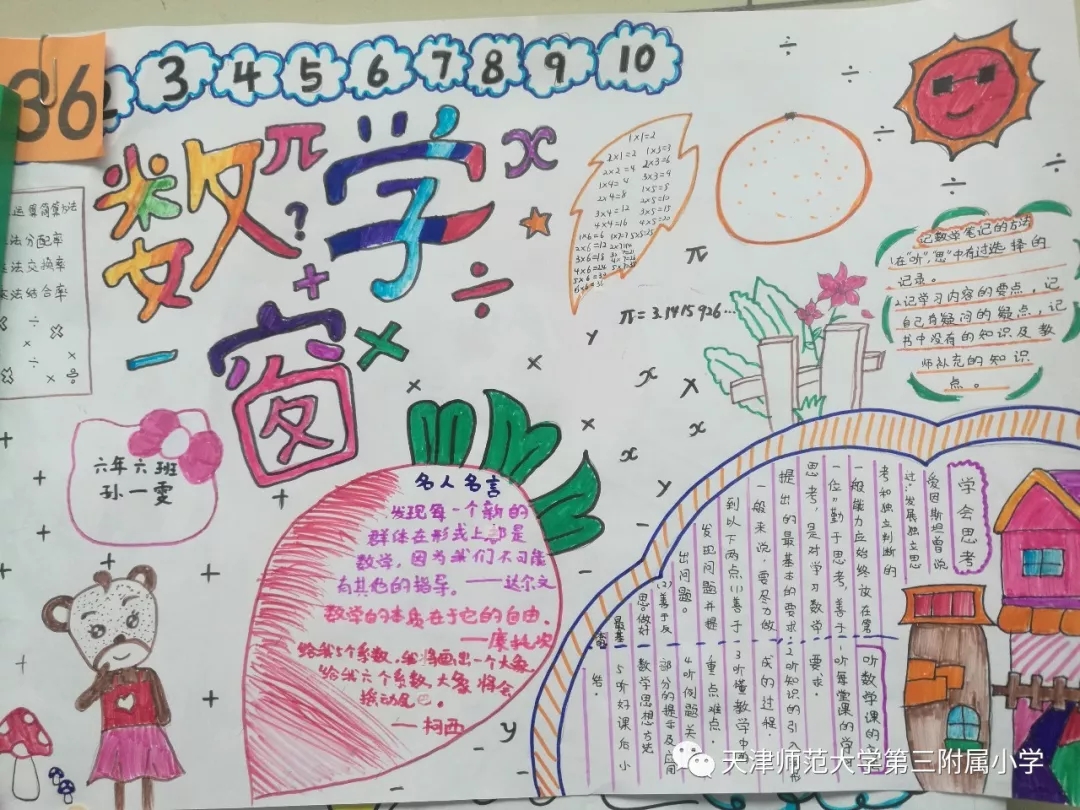 36
3 4 5 6 7 8 9 10
数学
π
x
?
+
÷
窗
×
运算简算方法
法分配率
法交换率
法结合率
六年六班
孙一雯
1×1=2
2×1=2 1×3=3
2×2=4 2×3=6
1×4=4 3×3=9
2×4=8 1×5=5
3×4=12 2×5=10
4×4=16 3×5=15
4×5=20
1×6=6 1×7=7 5×5=25
π
π=3.1415926…
记数学笔记的方法
1.在“听”,“思”中有过选择的
记录。
2.记学习内容的要点,记
自己有疑问的疑点,记
书中没有的知识及教
师补充的知识
点。
名人名言
发现每一个新的
群体在形式上都是
数学,因为我们不可能
有其他的指导。——达尔文
数学的本质在于它的自由.
——康托尔
给我5个系数,我将画出一个大象,
给我六个系数,大象将会
摇动尾巴。
——柯西
学会思考
爱因斯坦曾说
过:“发展独立思
考和独立判断的
一般能力应始终放在常
一位”勤于思考,善于
思考,是对学习数学
提出的最基本的要求
一般来说,要尽力做
到以下两点(1)善于
发现问题并提
出问题。
(2)善于反
思。做好
听数学课的
1听每堂课的学
要求.
2听知识的引入
成的过程.
3听懂数学中的
重点难点
4听例题关
部分的提示及应用
数学思想方法
5听好课后小
结.
天津师范大学第三附属小学